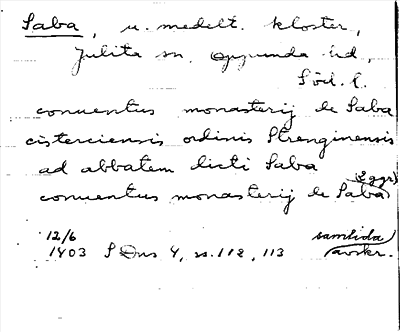 Saba, u. medelt. kloster,
Julita sn, Oppunda hd,
Söd. l.
conuentus monasterij de Saba
cisterciensis ordinis Strenginensis
ad abbatem dicti Saba
(2 ggr)
conuentus monasterij de Saba
12/6 samtida
1403 SDns 4, ss. 112, 113 avskr.